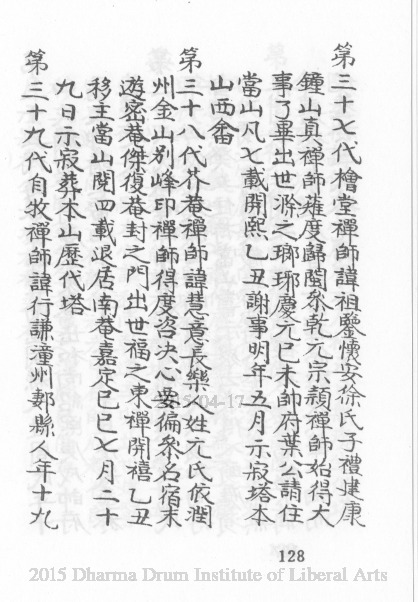 第三十七代檜堂禪師諱祖鑒懷安徐氏子禮建康
鍾山真禪師薙度歸閩參乾元宗頴禪師始得大
事了畢出世滁之瑯琊慶元己未帥府葉公請住
當山凡七載開熙乙丑謝事明年五月示寂塔本
山西畬
第三十八代芥菴禪師諱慧意長樂人姓亢氏依潤
州金山別峰印禪師得度咨決心要徧參名宿末
遊密菴傑復菴封之門出世福之東禪開禧乙丑
移主當山閱四載退居南菴嘉定己巳七月二十
九日示寂葬本山歷代塔
第三十九代自牧禪師諱行謙潼州郪縣人年十九
128
04-17
2015 Dharma Drum Institute of Liberal Arts